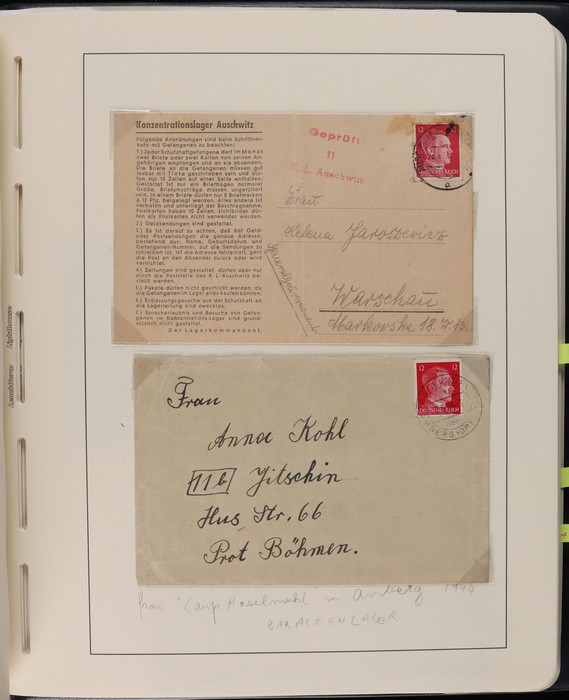 Konzentrationslager Auschwitz
Folgende Anordnungen sind beim Schriftver-
kehr mit Gefangenen zu beachten:
1.) Jeder Schutzhaftgefangene darf im Monat
zwei Briefe oder zwei Karten von seinen An-
gehörigen empfangen und an sie absenden.
Die Briefe an die Gefangenen müssen gut
lesbar mit Tinte geschrieben sein und dür-
fen nur 15 Zeilen auf einer Seite enthalten.
Gestattet ist nur ein Briefbogen normaler
Größe. Briefumschläge müssen ungefüttert
sein. In einem Briefe dürfen nur 5 Briefmarken
à 12 Pfg. beigelegt werden. Alles andere ist
verboten und unterliegt der Beschlagnahme.
Postkarten haben 10 Zeilen. Lichtbilder dür-
fen als Postkarten nicht verwendet werden.
2.) Geldsendungen sind gestattet.
3.) Es ist darauf zu achten, daß bei Geld-
oder Postsendungen die genaue Adresse,
bestehend aus: Name, Geburtsdatum und
Gefangenen-Nummer, auf die Sendungen zu
schreiben ist. Ist die Adresse fehlerhaft, geht
die Post an den Absender zurück oder wird
vernichtet.
4.) Zeitungen sind gestattet, dürfen aber nur
durch die Poststelle des K. L. Auschwitz be-
stellt werden.
5.) Pakete dürfen nicht geschickt werden, da
die Gefangenen im Lager alles kaufen können.
6.) Entlassungsgesuche aus der Schutzhaft an
die Lagerleitung sind zwecklos.
7.) Sprecherlaubnis und Besuche von Gefan-
genen im Konzentrations-Lager sind grund-
sätzlich nicht gestattet.
Der Lagerkommandant.
Geprüft
11
K. L. Auschwitz
12
DEUTSCHES REICH
Frau
Helena Jaroszewicz
Warschau
Markowska 18. W. 13.
12 12
DEUTSCHES REICH
Frau
Anna Kohl
11b Jitschin
Hus Str. 66
Prot Böhmen.
from "Camp Haselmühl" in Amberg 1944
BARACKENLAGER